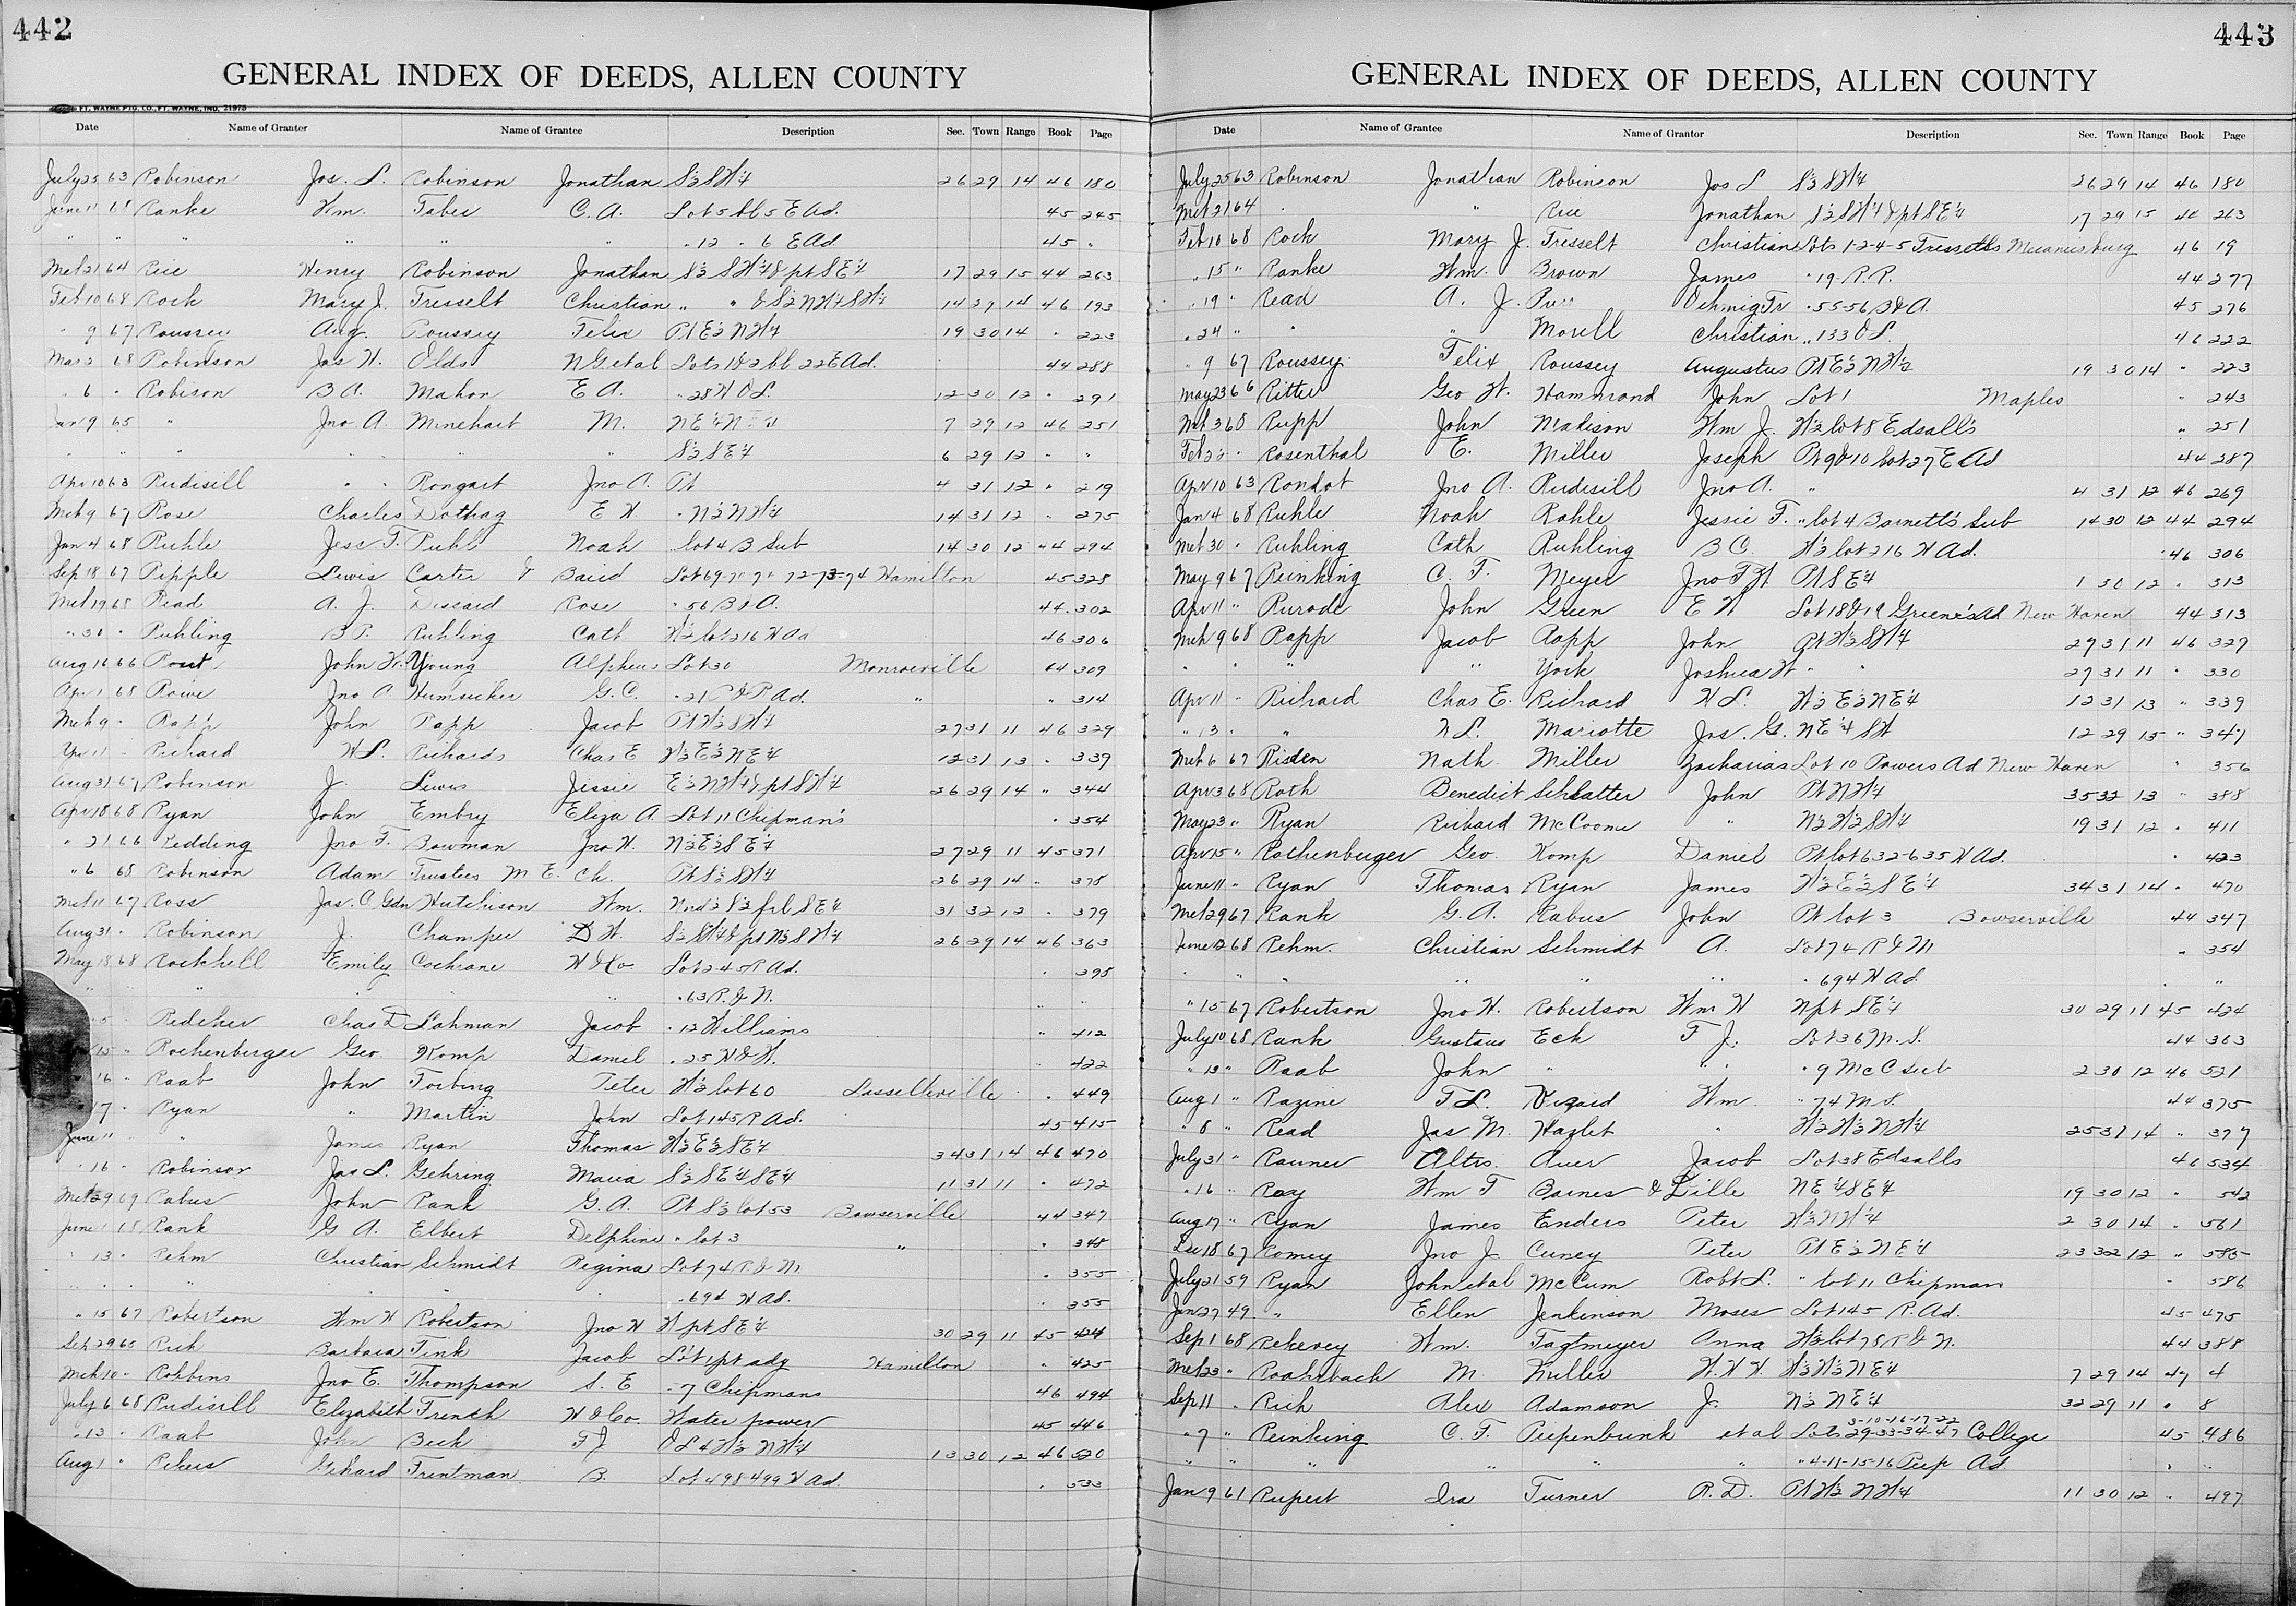 442
GENERAL INDEX OF DEEDS, ALLEN COUNTY
FT. WAYNE PTG. CO., FT. WAYNE, IND. 21975
Date Name of Granter Name of Grantee Description Sec. Town Range Book Page
July 25 63 Robinson Jos. L. Robinson Jonathan S½ SW¼ 26 29 14 46 180
June 11 68 Ranke Wm. Taber C. A. Lot 5 bl 5 E Ad. 45 245
" " " " " " " 12 " 6 E Ad 45 "
Mch 21 64 Rice Henry Robinson Jonathan S½ SW¼ & pt SE¼ 17 29 15 44 263
Feb 10 68 Rock Mary J. Tresselt Christian " " & S½ NW¼ SW¼ 14 29 14 46 193
" 9 67 Roussey Aug. Roussey Felix Pt E½ NW¼ 19 30 14 " 223
Mar 2 68 Robinson Jas H. Olds N G et al Lots 1 & 2 bl 22 E Ad. 44 288
" 6 " Robison B A. Mahon E A. " 28 W O L. 12 30 12 " 291
Jan 9 65 " Jno A. Minehart M. NE¼ 7 29 12 46 251
" " " " " " S½ SE¼ 6 29 12 " "
Apr 10 63 Rudisill " " Rongart Jno A. Pt 4 31 12 " 219
Mch 9 67 Rose Charles Dothag E H " N½ NW¼ 14 31 12 " 275
Jan 4 68 Ruhle Jesse T. Ruhl Noah " lot 4 B Sub 14 30 12 44 294
Sep 18 67 Pipple Lewis Carter & Baird Lot 69-70-71-72-73-74 Hamilton 45 328
Mch 19 68 Read A. J. Discard Rose " 56 B & A. 44 302
" 30 " Ruhling B P. Ruhling Cath W½ lot 216 W Ad 46 306
Aug 16 66 Rout John W. Young Alpheus Lot 30 Monroeville 44 309
Apr 1 68 Rowe Jno A. Hunsicker G. C. " 21 P & P Ad. " " 314
Mch 9 " Rapp John Rapp Jacob Pt W½ SW¼ 27 31 11 46 329
Apr 11 " Richard W L. Richards Chas E W½ E½ NE¼ 12 31 13 " 339
Aug 31 67 Robinson J. Lewis Jessie E½ NW¼ & pt SW¼ 26 29 14 " 344
Apr 18 68 Ryan John Embry Eliza A. Lot 11 Chipman's " 354
" 21 66 Redding Jno F. Bowman Jno H. N½ E½ SE¼ 27 29 11 45 371
" 6 68 Robinson Adam Trustees M E. Ch. Pt S½ SW¼ 26 29 14 " 378
Mch 11 67 Ross Jas. C Gdn Hutchison Wm. Und ½ S½ frl SE¼ 31 32 12 " 379
Aug 31 " Robinson J. Champer D H. S½ SW¼ & pt N½ SW¼ 26 29 14 46 363
May 18 68 Rockhill Emily Cochrane H & Co. Lot 245 R Ad. " 398
" " " " " " 63 R. & N. " "
5 " Redeker Chas D Lahman Jacob " 12 Williams " 412
15 " Rothenberger Geo. Komp Daniel " 25 H & H. " 422
16 " Raab John Torbing Peter W½ lot 60 Lasselleville " 449
17 " Ryan " Martin John Lot 145 R Ad. 45 415
June 11 " " James Ryan Thomas W½ E½ SE¼ 34 31 14 46 470
" 16 " Robinson Jas L. Gehring Maria S½ SE¼ SE¼ 11 31 11 " 472
Mch 29 69 Rabus John Rank G. A. Pt S½ lot 53 Bowserville 44 347
June 68 Rank G A. Elbert Delphine " lot 3 " " 348
" 13 " Rehm Christian Schmidt Regina Lot 74 R & M " 355
" " " " " 694 W Ad. " 355
" 15 67 Robertson Wm H Robertson Jno H W pt SE¼ 30 29 11 45 424
Sep 29 65 Rich Barbara Fink Jacob Lot 1 pt adg Hamilton " 425
Mch 10 " Robbins Jno E. Thompson S. E " 7 Chipmans 46 494
July 6 68 Rudisill Elizabeth French H & Co. Water power 45 446
" 13 " Raab John Beck F J. O L 4 W½ NW¼ 13 30 12 46 520
Aug 1 " Rekers Gehard Trentman B. Lot 498-499 W Ad. " 533
443
GENERAL INDEX OF DEEDS, ALLEN COUNTY
Date Name of Grantee Name of Grantor Description Sec. Town Range Book Page
July 25 63 Robinson Jonathan Robinson Jos L S½ SW¼ 26 29 14 46 180
Mch 21 64 " " Rice Jonathan S½ SW¼ & pt SE¼ 17 29 15 46 263
Feb 10 68 Rock Mary J. Tresselt Christian Lots 1-2-4-5 Tresselts Mecanicsburg 46 19
" 15 " Ranke Wm. Brown James " 19 R. R. 44 277
" 19 " Read A. J. Oehmig Tr " 55-56 B & A. 45 276
" 24 " " " Morell Christian " 133 O L. 46 222
" 9 67 Roussey Felix Roussey Augustus Pt E½ NW½ 19 30 14 " 223
May 23 66 Ritter Geo W. Hammond John Lot 1 Maples " 243
Mch 3 68 Rupp John Madison Wm J. W½ lot 8 Edsall's " 251
Feb 22 " Rosenthal E. Miller Joseph Pt 9 & 10 lot 27 E Ad 44 287
Apr 10 63 Rondot Jno A. Rudisill Jno A. " 4 31 12 46 269
Jan 4 68 Ruhle Noah Rahle Jessie F. " lot 4 Barnett's Sub 14 30 12 44 294
Mch 30 " Ruhling Cath Ruhling B C. W½ lot 216 W Ad. 46 306
May 9 67 Reinking C. F. Meyer Jno F W Pt SE¼ 1 30 12 " 313
Apr 11 " Rurode John Green E W Lot 18 & 19 Greene's Ad New Haven 44 313
Mch 9 68 Rapp Jacob Rapp John Pt W½ SW¼ 27 31 11 46 329
" " " " York Joshua W " " 27 31 11 " 330
Apr 11 " Richard Chas E. Richard W L. W½ E½ NE¼ 12 31 13 " 339
" 13 " " W L. Mariotte Jas. G. NE¼ SW 12 29 15 " 347
Mch 6 67 Risden Nath. Miller Zacharias Lot 10 Powers Ad New Haven " 356
Apr 3 68 Roth Benedict Schlatter John Pt NW¼ 35 32 13 " 388
May 23 " Ryan Richard McCoome " N½ W½ SW¼ 19 31 12 " 411
Apr 15 " Rothenberger Geo. Komp Daniel Pt lot 632-635 W Ad. " 423
June 11 " Ryan Thomas Ryan James W½ E½ SE¼ 34 31 14 " 470
Mch 29 67 Rank G. A. Rabus John Pt lot 3 Bowserville 44 347
June 12 68 Rehm. Christian Schmidt A. Lot 74 R & M " 354
" " " " " " " 694 W Ad. " "
" 15 67 Robertson Jno H. Robertson Wm H N pt SE¼ 30 29 11 45 424
July 10 68 Rank Gustavus Eck F J. Lot 36 M. S. 44 363
" 13 " Raab John " " " 9 McC Sub 2 30 12 46 521
Aug 1 " Razine F L. Wm. " 74 M S. 44 375
" 8 " Read Jas. M. Hazlet " W½ W½ NW¼ 25 31 14 " 377
July 31 " Rauner Altis. Auer Jacob Lot 38 Edsalls 46 534
" 16 " Ray Wm F Barnes & Lille NE¼ SE¼ 19 30 12 " 542
Aug 17 " Ryan James Enders Peter W½ NW¼ 2 30 14 " 561
Dec 18 67 Romey Jno J. Curey Peter Pt E½ NE¼ 23 32 12 " 585
July 21 59 Ryan John et al McCum Robt L. " lot 11 Chipman " 586
Jan 27 49 " Ellen Jenkinson Moses Lot 145 R. Ad. 45 475
Sep 1 68 Rekevey Wm. Tagtmeyer Anna W½ lot 78 R & N. 44 388
Mch 23 " Roahrback M. Miller W. H H. W½ W½ NE¼ 7 29 14 47 4
Sep 11 " Rich Alex Adamson J. N½ NE¼ 32 29 11 " 8
" 7 " Reinking C. F. Piepenbrink et al Lots 3-10-16-17-22 29-33-34-47 College 45 486
" " " " " " " 4-11-15-16 Piep Ad " "
Jan 9 61 Rupert Ira Turner R. D. Pt W½ NW¼ 11 30 12 " 497